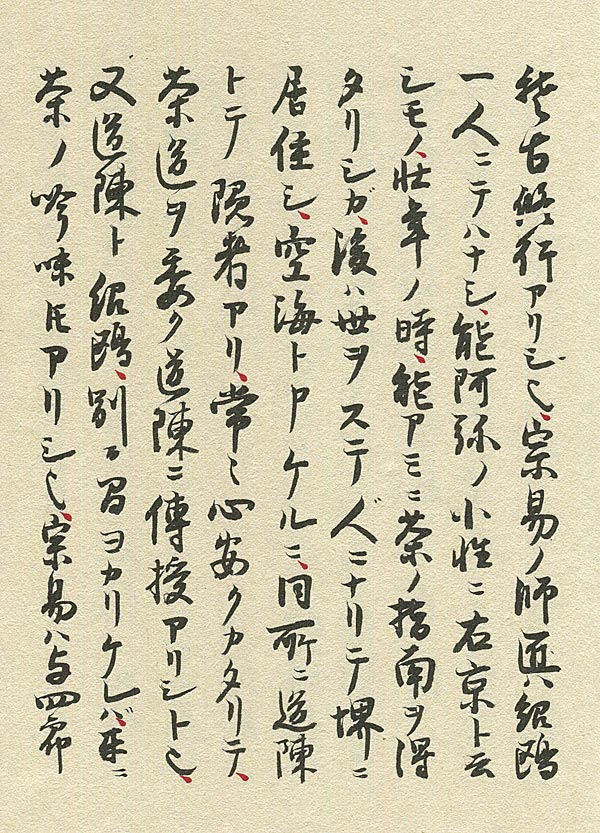 稽古修行アリシ也、宗易ノ師匠ハ紹鴎
一人ニテハナシ、能阿弥ノ小性ニ右京ト云
シモノ、壮年ノ時、能アミニ茶ノ指南ヲ得
タリシガ、後ハ世ヲステ人ニナリテ堺ニ
居住シ、空海ト申ケルニ、同所ニ道陳
トテ隠者アリ、常ニ心安クカタリテ、
茶道ヲ委ク道陳ニ傳授アリシト也、
又道陳ト紹鴎、別而間ヨカリケレバ、互ニ
茶ノ吟味トモアリシ也、宗易ハ与四郎